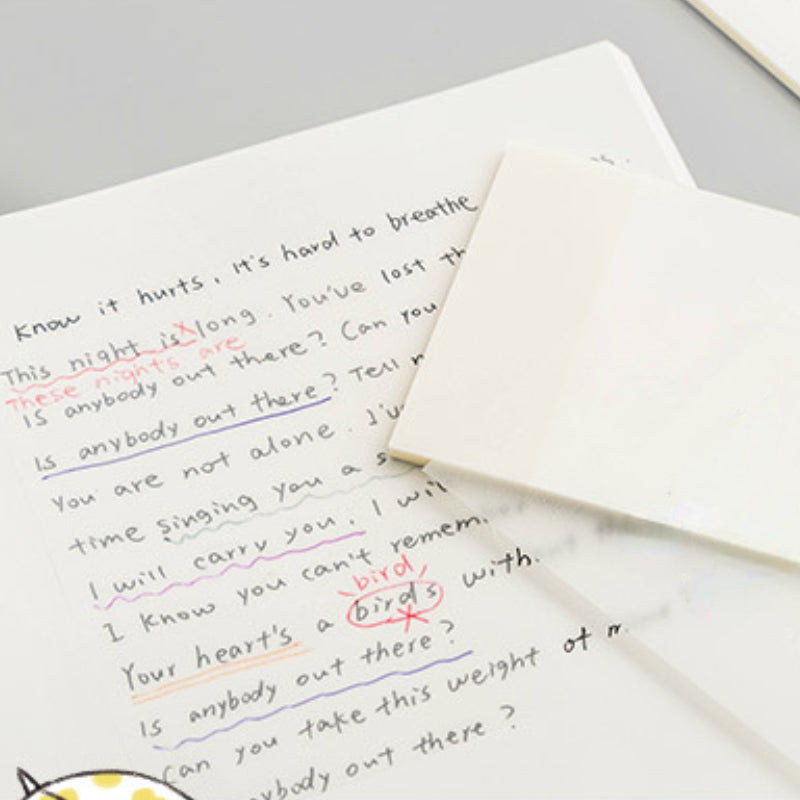 Know it hurts, It's hard to breathe
This night is long. You've lost
These nights are
Is anybody out there? Can you
Is anybody out there? Tell
You are not alone.
time singing you a
I will carry you. I
I know you can't
bird
Your heart's a birds with
Is anybody out there?
Can you take this weight of
out there?